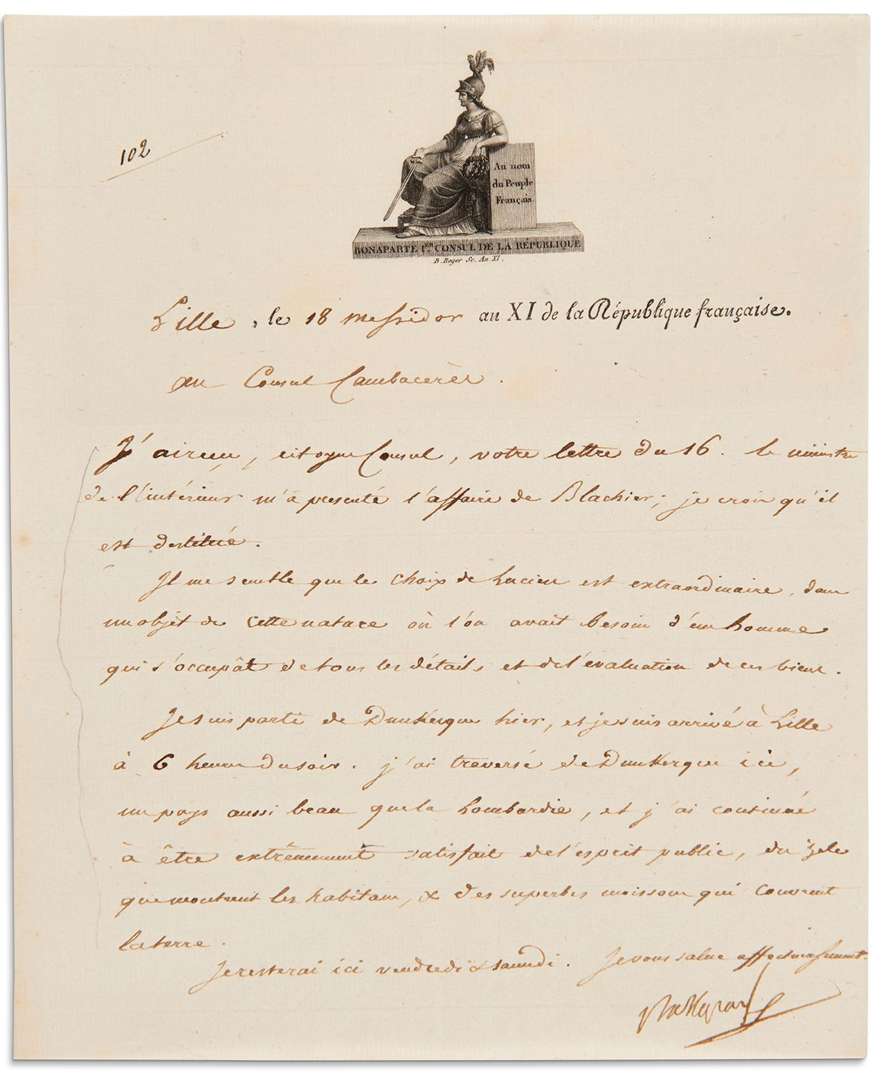 102
Au nom
du Peuple
Français
BONAPARTE 1.er CONSUL DE LA RÉPUBLIQUE
B. Roger Sc. An XI.
Lille, le 18 messidor an XI de la République française.
au Consul Cambacérès.
J'ai reçu, citoyen Consul, votre lettre du 16. le ministre
de l'intérieur m'a presenté l'affaire de Blachier; je crois qu'il
est destitué.
Il me semble que le choix de Lucien est extraordinaire, dans
un objet de cette nature où l'on avait besoin d'un homme
qui s'occupât de tous les détails et de l'évaluation de ces biens.
Je suis parti de Dunkerque hier, et je suis arrivé à Lille
à 6 heures du soir. j'ai traversé de Dunkerque ici,
un pays aussi beau que la Lombardie, et j'ai continué
à être extrêmement satisfait de l'esprit public, du zele
que montrent les habitans, & des superbes moissons qui couvrent
la terre.
Je resterai ici vendredi & samedi. Je vous salue affectueusement.